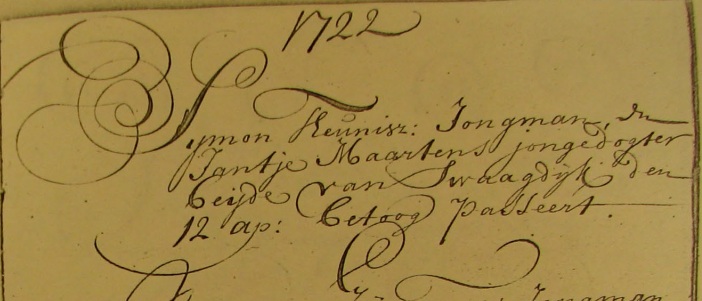 1722
Symon Teunisz: Jongman, En
Jantje Maartens jongedogter
beijde van Swaagdijk den
12 ap: betoog passeert.
Jongman